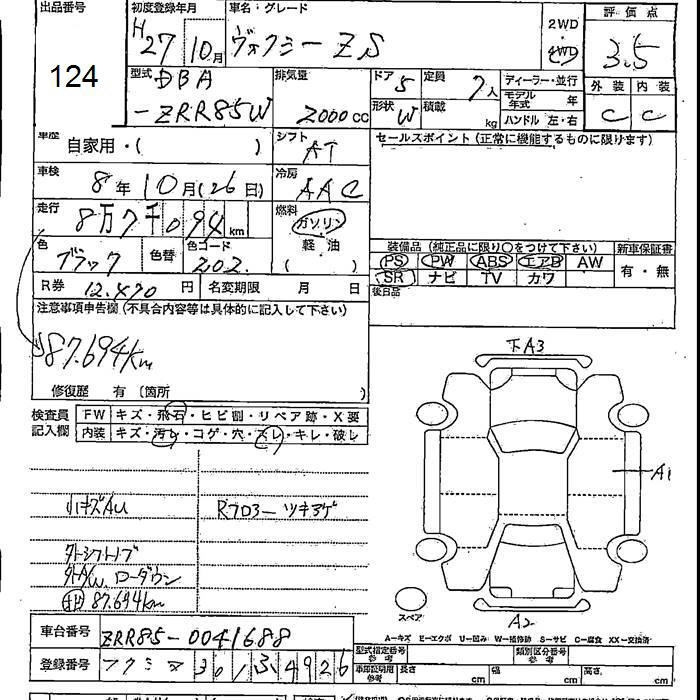 出品番号 124
初度登録年月 H27 10月
車名・グレード ヴォクシー ZS
2WD 4WD
評価点 3.5
外装 内装
C C
型式 DBA
-ZRR85W
排気量 2000cc
ドア 5 定員 7人
形状 W 積載 kg
ディーラー・並行
モデル年式 年
ハンドル 左・右
車歴 自家用・( )
シフト AT
セールスポイント (正常に機能するものに限ります)
車検 8年10月(26日)
冷房 AAC
走行 8万7千094km
燃料 ガソリン
軽・油
( )
色 ブラック 色替 色コード 202
装備品 (純正品に限り○をつけて下さい) 新車保証書
PS PW ABS エアB AW 有・無
SR ナビ TV カワ
後日品
R券 12.470円 名変期限 月 日
注意事項申告欄 (不具合内容等は具体的に記入して下さい)
87.694km
修復歴 有 〔箇所 〕
検査員記入欄
FW キズ・飛石・ヒビ割・リペア跡・X要
内装 キズ・汚れ・コゲ・穴・スレ・キレ・破レ
小キズAU
Rフロアー ツキアゲ
外シフトノブ
外A/W ローダウン
87.694km
下A3
A1
A2
スペア
A-キズ E-エクボ U-凹み W-補修跡 S-サビ C-腐食 XX-交換済
車台番号 ZRR85-0041688
型式指定番号 参考 類別区分番号 参考
登録番号
車庫証明用 参考 長さ cm 幅 cm 高さ cm